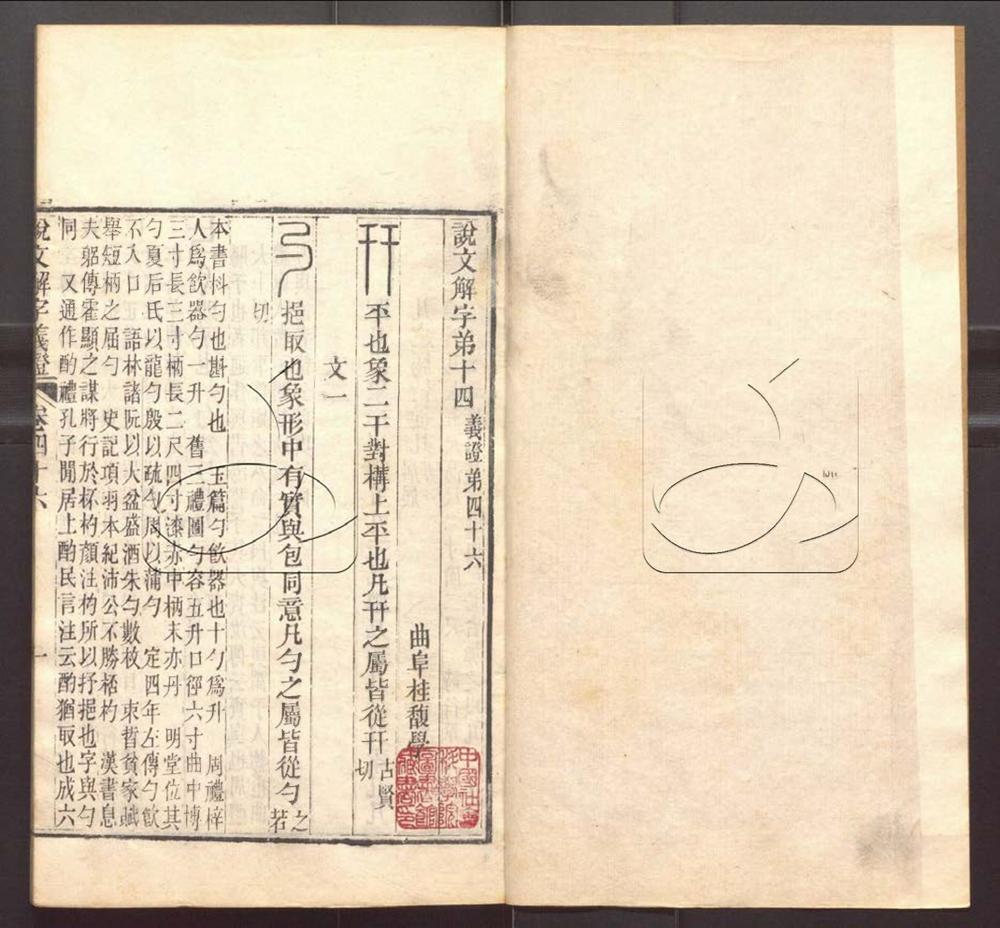 說文解字弟十四 義證弟四十六
曲阜桂馥學
幵 平也象二干對構上平也凡幵之屬皆從幵 古賢切
文一
勺 挹取也象形中有實與包同意凡勺之屬皆從勺 之若切
本書枓勺也斟勺也 玉篇勺飲器也十勺爲升 周禮梓
人爲飲器勺一升 舊三禮圖勺容五升口徑六寸曲中博
三寸長三寸柄長二尺四寸漆赤中柄末亦丹 明堂位其
勺夏后氏以龍勺殷以疏勺周以蒲勺 定四年左傳勺飲
不入口 語林諸阮以大盆盛酒朱勺數枚 束晳貧家賦
舉短柄之屈勺 史記項羽本紀沛公不勝桮杓 漢書息
夫躬傳霍顯之謀將行於杯杓顔注杓所以抒挹也字與勺
同 又通作酌禮孔子閒居上酌民言注云酌猶取也成六
說文解字義證 卷四十六 一